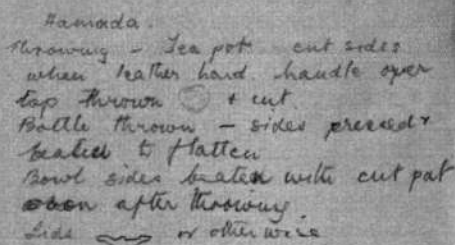 Hamada.
Throwing - Tea pot cut sides
when leather hard. handle over
top thrown + cut.
Bottle thrown - sides pressed &
beated to flatten
Bowl sides beaten with cut pat
soon after throwing
Lids or otherwise